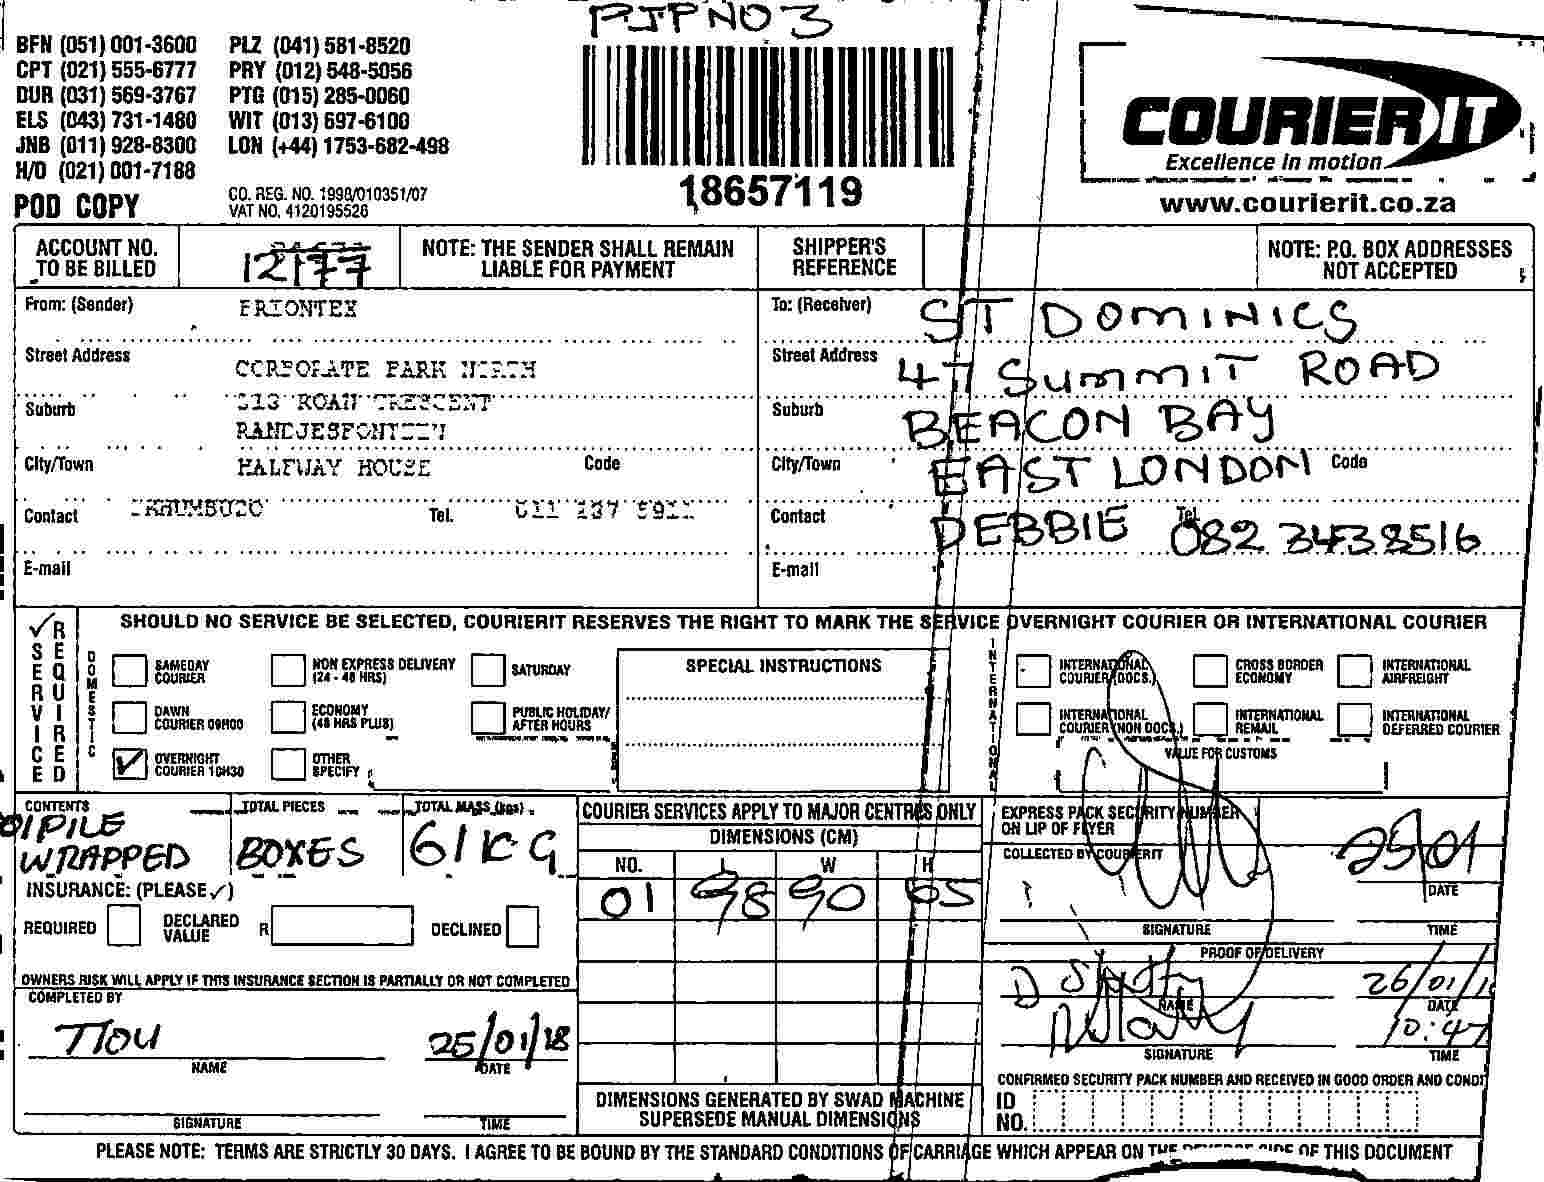 PJPNO3
BFN (051) 001-3600 PLZ (041) 581-8520
CPT (021) 555-6777 PRY (012) 548-5056
DUR (031) 569-3767 PTG (015) 285-0060
ELS (043) 731-1480 WIT (013) 697-6100
JNB (011) 928-8300 LON (+44) 1753-682-498
H/O (021) 001-7188
POD COPY
CO. REG. NO. 1998/010351/07
VAT NO. 4120195526
18657119
COURIER IT
Excellence in motion
www.courierit.co.za
ACCOUNT NO. TO BE BILLED
12177
NOTE: THE SENDER SHALL REMAIN LIABLE FOR PAYMENT
SHIPPER'S REFERENCE
NOTE: P.O. BOX ADDRESSES NOT ACCEPTED
From: (Sender) FRIONTEX
Street Address CORPORATE PARK NORTH
Suburb 313 ROAN CRESCENT
RANDJESFONTEIN
City/Town HALFWAY HOUSE Code
Contact Tel.
E-mail
To: (Receiver) ST DOMINICS
Street Address 47 SUMMIT ROAD
Suburb BEACON BAY
City/Town EAST LONDON Code
Contact DEBBIE Tel. 082 3438516
E-mail
SERVICE REQUIRED
SHOULD NO SERVICE BE SELECTED, COURIERIT RESERVES THE RIGHT TO MARK THE SERVICE OVERNIGHT COURIER OR INTERNATIONAL COURIER
DOMESTIC
SAMEDAY COURIER
NON EXPRESS DELIVERY (24 - 48 HRS)
SATURDAY
DAWN COURIER 09H00
ECONOMY (48 HRS PLUS)
PUBLIC HOLIDAY/ AFTER HOURS
OVERNIGHT COURIER 10H30
OTHER SPECIFY
SPECIAL INSTRUCTIONS
INTERNATIONAL
INTERNATIONAL COURIER (DOCS.)
CROSS BORDER ECONOMY
INTERNATIONAL AIRFREIGHT
INTERNATIONAL COURIER (NON DOCS.)
INTERNATIONAL REMAIL
INTERNATIONAL DEFERRED COURIER
VALUE FOR CUSTOMS
CONTENTS TOTAL PIECES TOTAL MASS (kgs)
01 PILE WRAPPED BOXES 61KG
INSURANCE: (PLEASE ✓)
REQUIRED DECLARED VALUE R DECLINED
OWNERS RISK WILL APPLY IF THIS INSURANCE SECTION IS PARTIALLY OR NOT COMPLETED
COMPLETED BY
25/01/18
NAME DATE
SIGNATURE TIME
COURIER SERVICES APPLY TO MAJOR CENTRES ONLY
DIMENSIONS (CM)
NO. L W H
01 98 90 65
DIMENSIONS GENERATED BY SWAD MACHINE
SUPERSEDE MANUAL DIMENSIONS
EXPRESS PACK SECURITY NUMBER
ON LIP OF FLYER
COLLECTED BY COURIERIT
25/01
DATE
SIGNATURE TIME
PROOF OF DELIVERY
26/01/1
NAME DATE
10:47
SIGNATURE TIME
CONFIRMED SECURITY PACK NUMBER AND RECEIVED IN GOOD ORDER AND CONDI
ID NO.
PLEASE NOTE: TERMS ARE STRICTLY 30 DAYS. I AGREE TO BE BOUND BY THE STANDARD CONDITIONS OF CARRIAGE WHICH APPEAR ON THE REVERSE SIDE OF THIS DOCUMENT